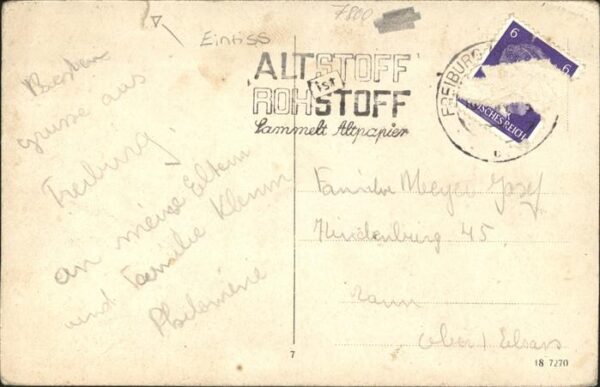 7800
Einriss
ALTSTOFF
ist
ROHSTOFF
Sammelt Altpapier
FREIBURG
6 6
DEUTSCHES REICH
c
Besten
grüsse aus
Freiburg.
an meine Eltern
und Familie Klemm
Philomene
Familie Meyer Josef
Hindenburg 45
Tann
Ober Elsass
7
18 7270